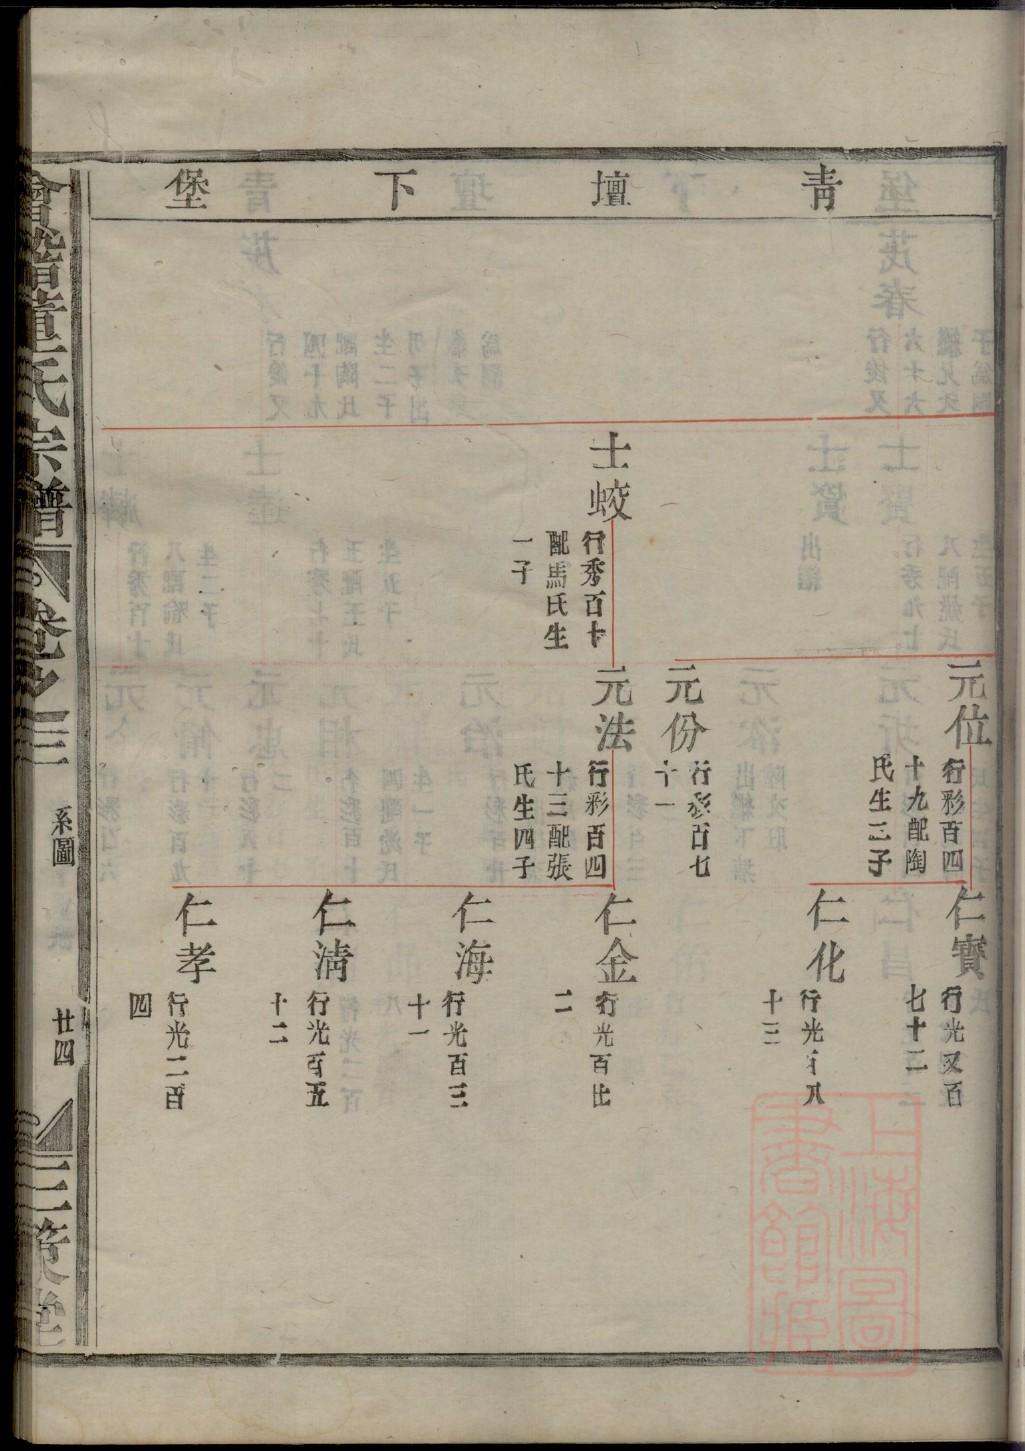 青壇下堡
士蛟
行秀百十
配馬氏生
一子
元位
行彩百四
十九配陶
氏生二子
元份
行彩百七
十一
元法
行彩百四
十三配張
氏生四子
仁寶
行光又百
七十二
仁化
行光百八
十三
仁金
行光百
二
仁海
行光百三
十一
仁淸
行光百五
十二
仁孝
行光二百
四
會稽董氏宗譜
卷之三
系圖
廿四
三策堂
上海圖
書館藏